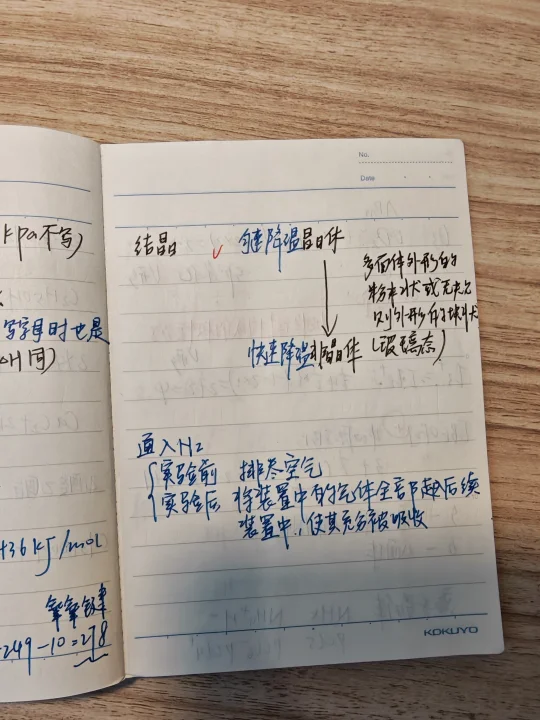 kpa不写)
写字母时也是
同)
+36 kJ/mol
249-10=218
No.
Date
结晶 ✓ 匀速降温晶体
↓
多面体外形的
粉末状或无规
则外形的块状
(玻璃态)
快速降温非晶体
通入N2
实验前 排尽空气
实验后 将装置中的气体全部赶后续
装置中,使其充分被吸收
KOKUYO